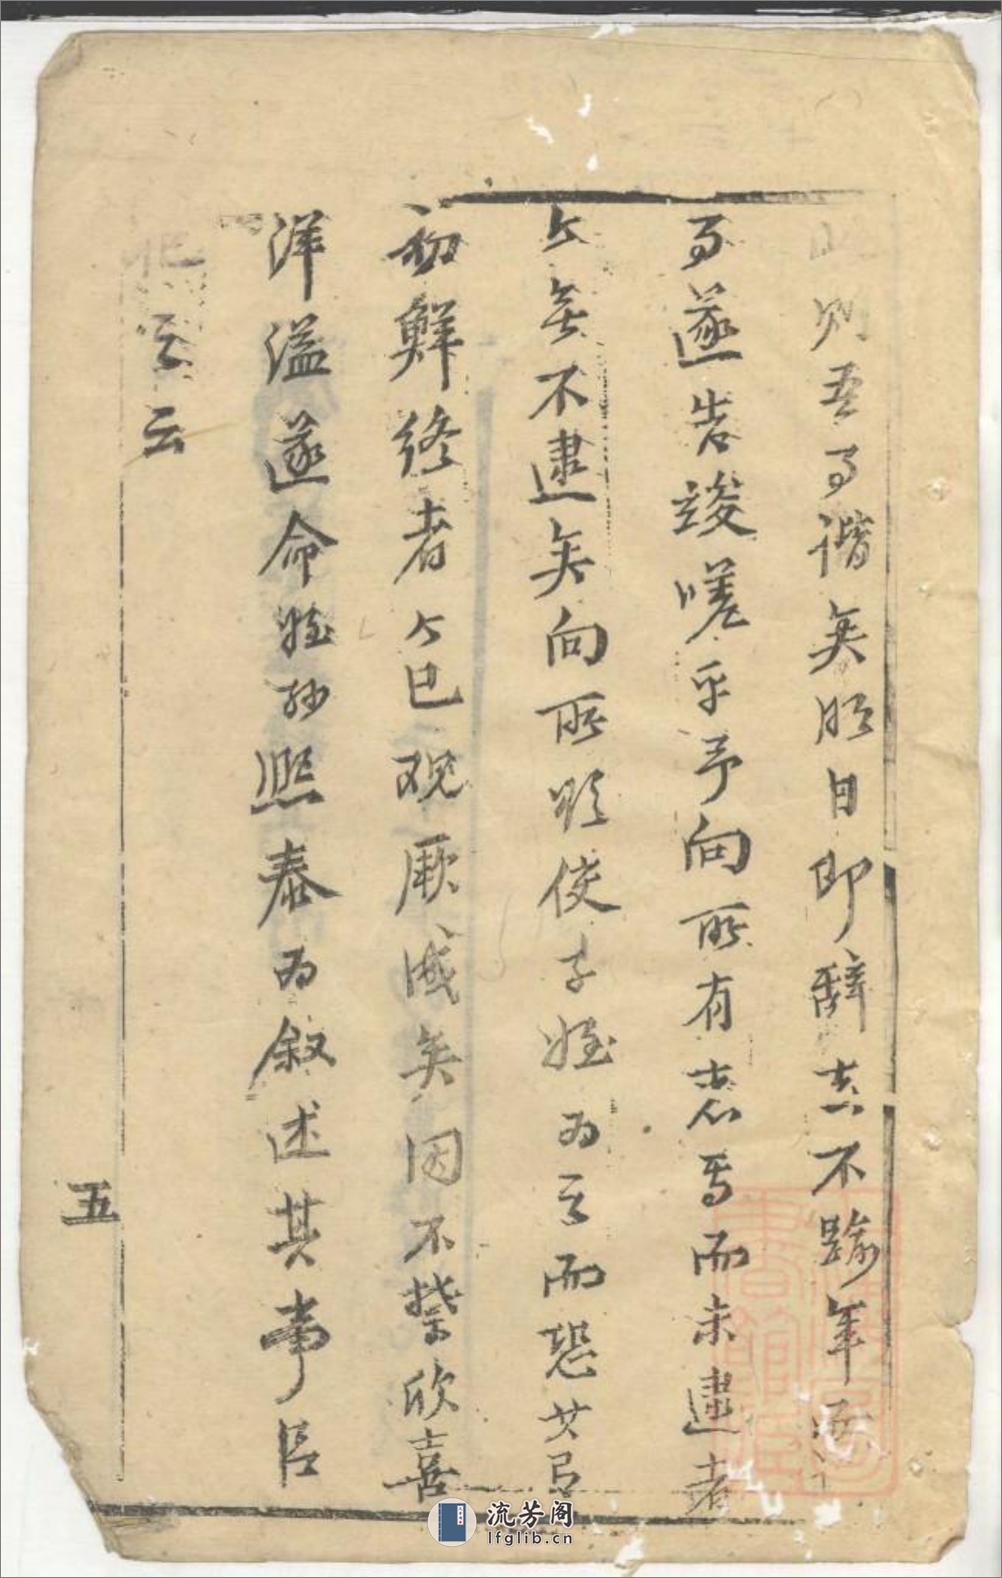 則吾事諧矣明日即辭去不踰年而
事遂告竣嗟乎予向所有志焉而未逮者
今無不逮矣向所欲使子姪為之而恐其鮮
初鮮終者今已观厥成矣因不禁欣喜
洋溢遂命姪孙熙泰为叙述其事以
云云
五
流芳阁
lfglib.cn